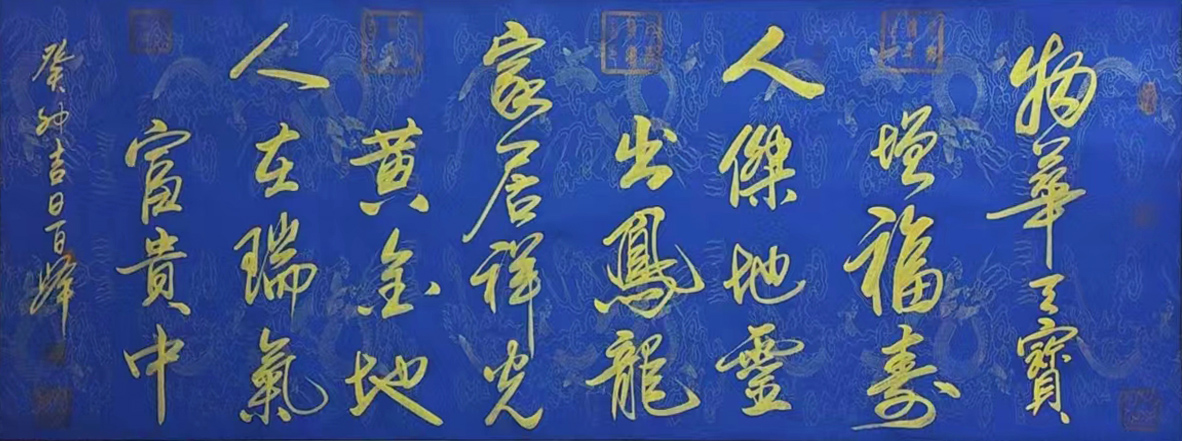 物華天寶
增福寿
人傑地靈
出鳳龍
家居祥光
黄金地
人在瑞氣
富貴中
癸卯吉日百峰